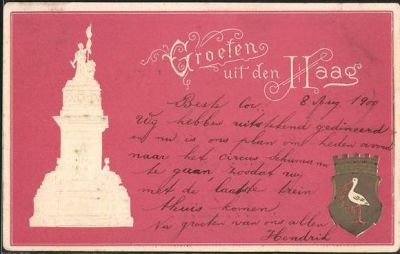 Groeten
uit den Haag
Beste Cor. 8 Aug 1900
Wij hebben uitstekend gedineerd
en nu is ons plan om heden avond
naar het circus Schumann
te gaan zoodat wij
met de laatste trein
thuis komen
Na groeten van ons allen
Hendrik